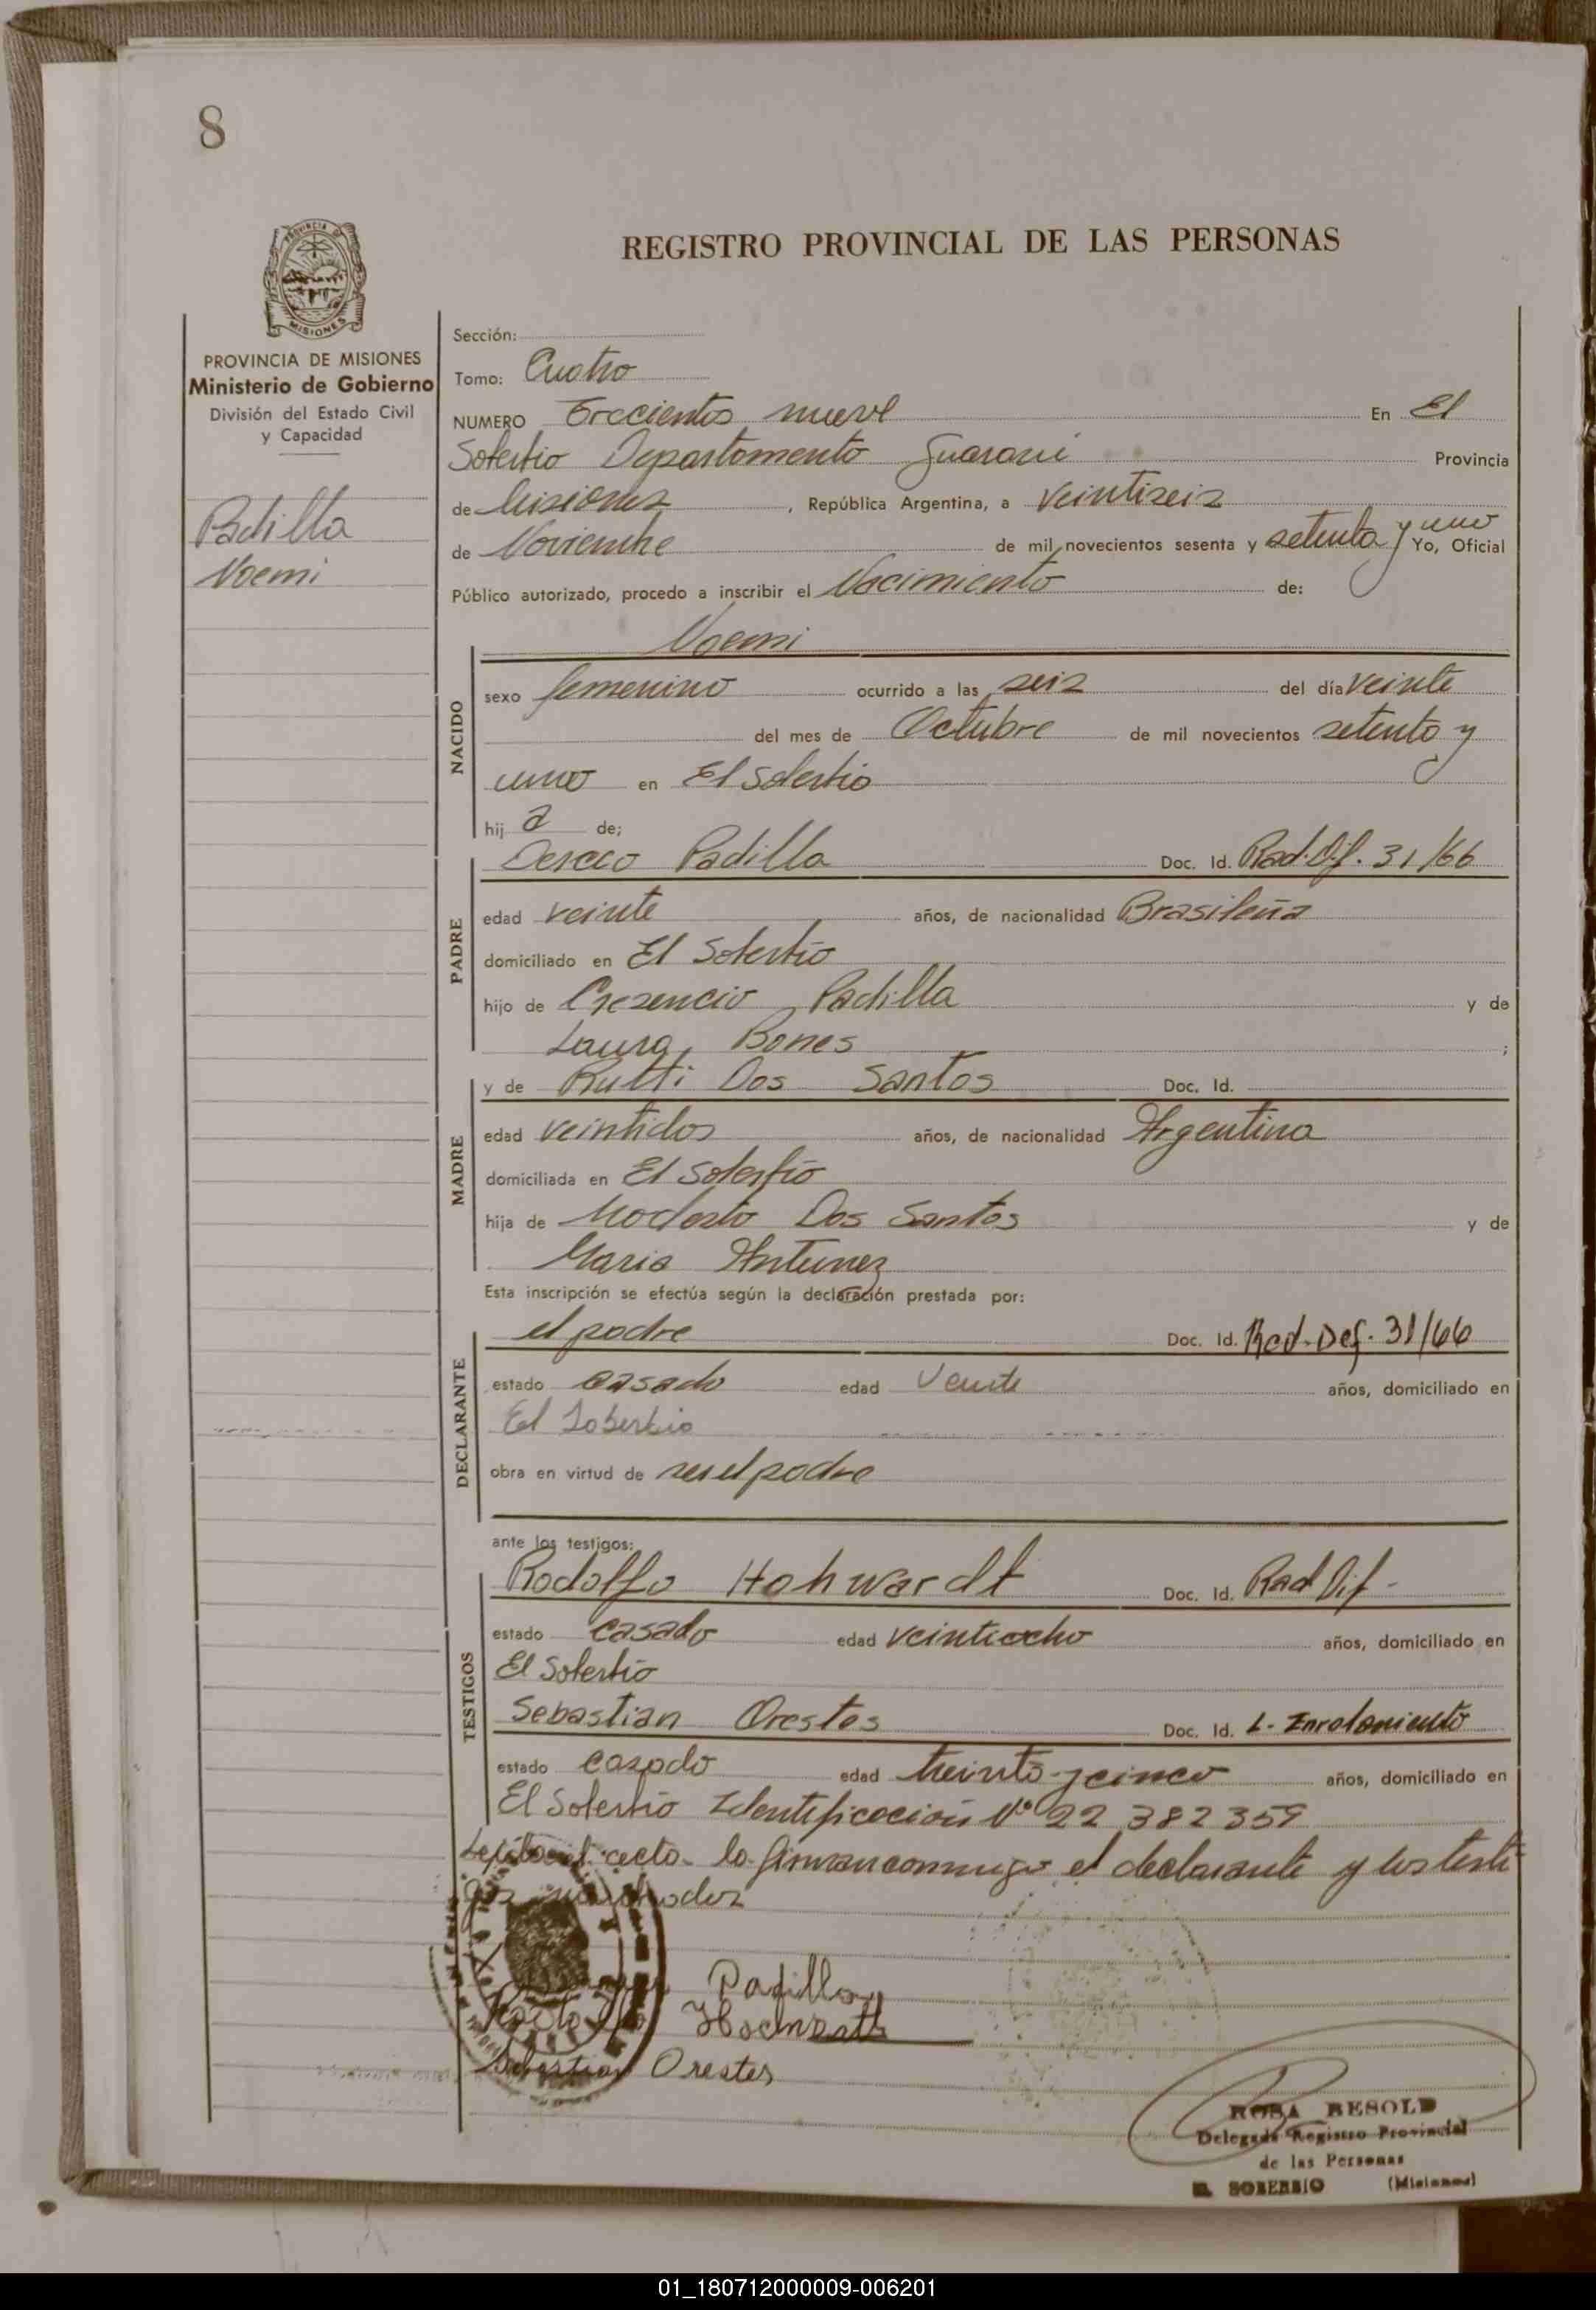 8
PROVINCIA DE
MISIONES
REGISTRO PROVINCIAL DE LAS PERSONAS
PROVINCIA DE MISIONES
Ministerio de Gobierno
División del Estado Civil
y Capacidad
Padilla
Noemi
Sección:
Tomo: Cuatro
NUMERO Trecientos nueve En El
Soberbio Departamento Guarani Provincia
de Misiones, República Argentina, a Veintiseis
de Noviembre de mil novecientos sesenta y setenta y uno Yo, Oficial
Público autorizado, procedo a inscribir el Nacimiento de:
Noemi
NACIDO
sexo femenino ocurrido a las seis del día veinte
del mes de Octubre de mil novecientos setenta y
uno en El Soberbio
hij a de;
Padilla Doc. Id. Rad. Dif. 31/66
PADRE
edad veinte años, de nacionalidad Brasileña
domiciliado en El Soberbio
hijo de Cresencio Padilla y de
Laura Bones ;
y de Rutti Dos Santos Doc. Id.
MADRE
edad veintidos años, de nacionalidad Argentina
domiciliada en El Soberbio
hija de Modesto Dos Santos y de
Maria Antunez
Esta inscripción se efectúa según la declaración prestada por:
el padre Doc. Id. Rad. Def. 31/66
DECLARANTE
estado casado edad Veinte años, domiciliado en
El Soberbio
obra en virtud de ser el padre
ante los testigos:
Rodolfo Hohwardt Doc. Id. Rad Dif -
TESTIGOS
estado casado edad veintiocho años, domiciliado en
El Soberbio
Sebastian Orestes Doc. Id. L- Enrolamiento
estado casado edad treinta y cinco años, domiciliado en
El Soberbio Identificacion Nº 22 382 359
acta la firman conmigo el declarante y los testi
gos
Padilla
Sebastian Orestes
ROSA BESOLD
Delegada Registro Provincial
de las Personas
EL SOBERBIO (Misiones)
01_180712000009-006201